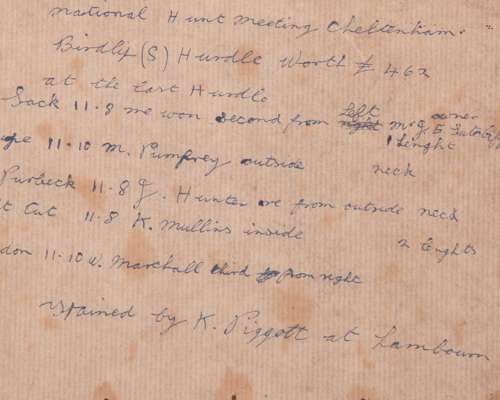 national Hunt meeting Cheltenham.
Birdlip (S) Hurdle Worth £ 462
at the Last Hurdle
Sack 11.8 me won second from left right mr J. E owner
1 Lenght
pe 11.10 M. Pumfrey outside neck
Purbeck 11.8 J. Hunter from outside neck
it Cut 11.8 K. Mullins inside 2 Lenghts
don 11.10 w. Marshall third from right
trained by K. Piggott at Lambourn